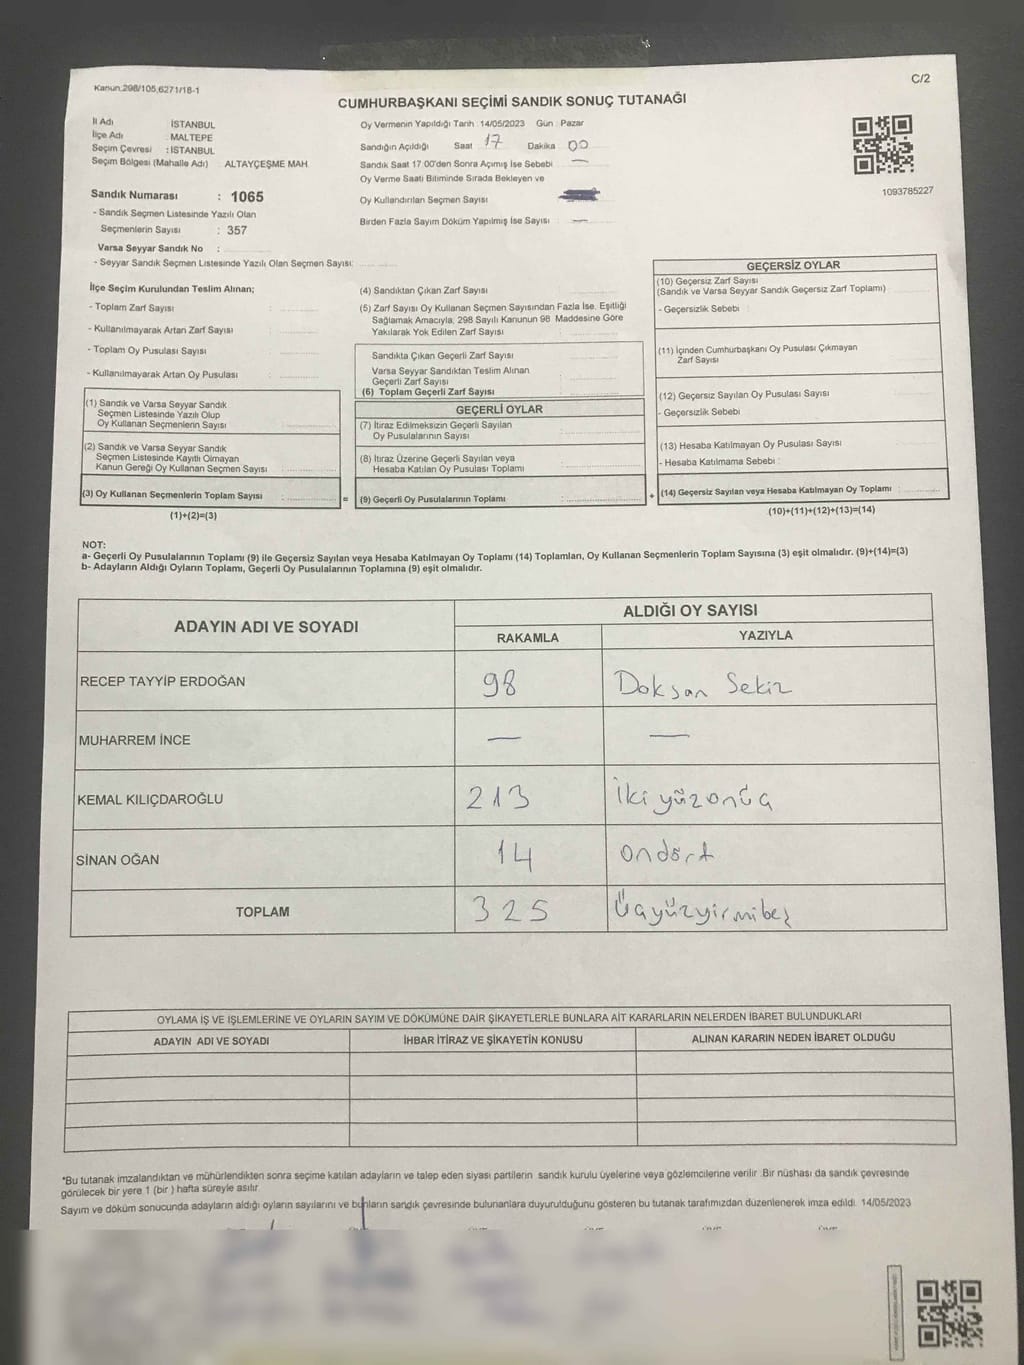 Kanun:298/105,6271/18-1
C/2
CUMHURBAŞKANI SEÇİMİ SANDIK SONUÇ TUTANAĞI
İl Adı İSTANBUL
İlçe Adı MALTEPE
Seçim Çevresi : İSTANBUL
Seçim Bölgesi (Mahalle Adı) ALTAYÇEŞME MAH
Sandık Numarası : 1065
- Sandık Seçmen Listesinde Yazılı Olan
Seçmenlerin Sayısı : 357
Varsa Seyyar Sandık No :
- Seyyar Sandık Seçmen Listesinde Yazılı Olan Seçmen Sayısı:
Oy Vermenin Yapıldığı Tarih :14/05/2023 Gün : Pazar
Sandığın Açıldığı Saat 17 Dakika 00
Sandık Saat 17:00'den Sonra Açımış İse Sebebi : —
Oy Verme Saati Bitiminde Sırada Bekleyen ve
Oy Kullandırılan Seçmen Sayısı
Birden Fazla Sayım Döküm Yapılmış İse Sayısı : —
1093785227
İlçe Seçim Kurulundan Teslim Alınan;
- Toplam Zarf Sayısı :
- Kullanılmayarak Artan Zarf Sayısı
- Toplam Oy Pusulası Sayısı
- Kullanılmayarak Artan Oy Pusulası :
(1) Sandık ve Varsa Seyyar Sandık
Seçmen Listesinde Yazılı Olup
Oy Kullanan Seçmenlerin Sayısı :
(2) Sandık ve Varsa Seyyar Sandık
Seçmen Listesinde Kayıtlı Olmayan
Kanun Gereği Oy Kullanan Seçmen Sayısı :
(3) Oy Kullanan Seçmenlerin Toplam Sayısı :
(1)+(2)=(3)
(4) Sandıktan Çıkan Zarf Sayısı
(5) Zarf Sayısı Oy Kullanan Seçmen Sayısından Fazla İse, Eşitliği
Sağlamak Amacıyla, 298 Sayılı Kanunun 98 Maddesine Göre
Yakılarak Yok Edilen Zarf Sayısı :
Sandıkta Çıkan Geçerli Zarf Sayısı
Varsa Seyyar Sandıktan Teslim Alınan
Geçerli Zarf Sayısı :
(6) Toplam Geçerli Zarf Sayısı :
GEÇERLİ OYLAR
(7) İtiraz Edilmeksizin Geçerli Sayılan
Oy Pusulalarının Sayısı :
(8) İtiraz Üzerine Geçerli Sayılan veya
Hesaba Katılan Oy Pusulası Toplamı :
= (9) Geçerli Oy Pusulalarının Toplamı :
GEÇERSİZ OYLAR
(10) Geçersiz Zarf Sayısı
(Sandık ve Varsa Seyyar Sandık Geçersiz Zarf Toplamı)
- Geçersizlik Sebebi :
(11) İçinden Cumhurbaşkanı Oy Pusulası Çıkmayan
Zarf Sayısı
(12) Geçersiz Sayılan Oy Pusulası Sayısı
- Geçersizlik Sebebi
(13) Hesaba Katılmayan Oy Pusulası Sayısı
- Hesaba Katılmama Sebebi :
+ (14) Geçersiz Sayılan veya Hesaba Katılmayan Oy Toplamı :
(10)+(11)+(12)+(13)=(14)
NOT:
a- Geçerli Oy Pusulalarının Toplamı (9) ile Geçersiz Sayılan veya Hesaba Katılmayan Oy Toplamı (14) Toplamları, Oy Kullanan Seçmenlerin Toplam Sayısına (3) eşit olmalıdır. (9)+(14)=(3)
b- Adayların Aldığı Oyların Toplamı, Geçerli Oy Pusulalarının Toplamına (9) eşit olmalıdır.
ADAYIN ADI VE SOYADI ALDIĞI OY SAYISI
RAKAMLA YAZIYLA
RECEP TAYYİP ERDOĞAN 98 Doksan Sekiz
MUHARREM İNCE — —
KEMAL KILIÇDAROĞLU 213 İkiyüzonüç
SİNAN OĞAN 14 ondört
TOPLAM 325 Üçyüzyirmibeş
OYLAMA İŞ VE İŞLEMLERİNE VE OYLARIN SAYIM VE DÖKÜMÜNE DAİR ŞİKAYETLERLE BUNLARA AİT KARARLARIN NELERDEN İBARET BULUNDUKLARI
ADAYIN ADI VE SOYADI İHBAR İTİRAZ VE ŞİKAYETİN KONUSU ALINAN KARARIN NEDEN İBARET OLDUĞU
*Bu tutanak imzalandıktan ve mühürlendikten sonra seçime katılan adayların ve talep eden siyasi partilerin sandık kurulu üyelerine veya gözlemcilerine verilir. Bir nüshası da sandık çevresinde
görülecek bir yere 1 (bir ) hafta süreyle asılır.
Sayım ve döküm sonucunda adayların aldığı oyların sayılarını ve bunların sandık çevresinde bulunanlara duyurulduğunu gösteren bu tutanak tarafımızdan düzenlenerek imza edildi. 14/05/2023